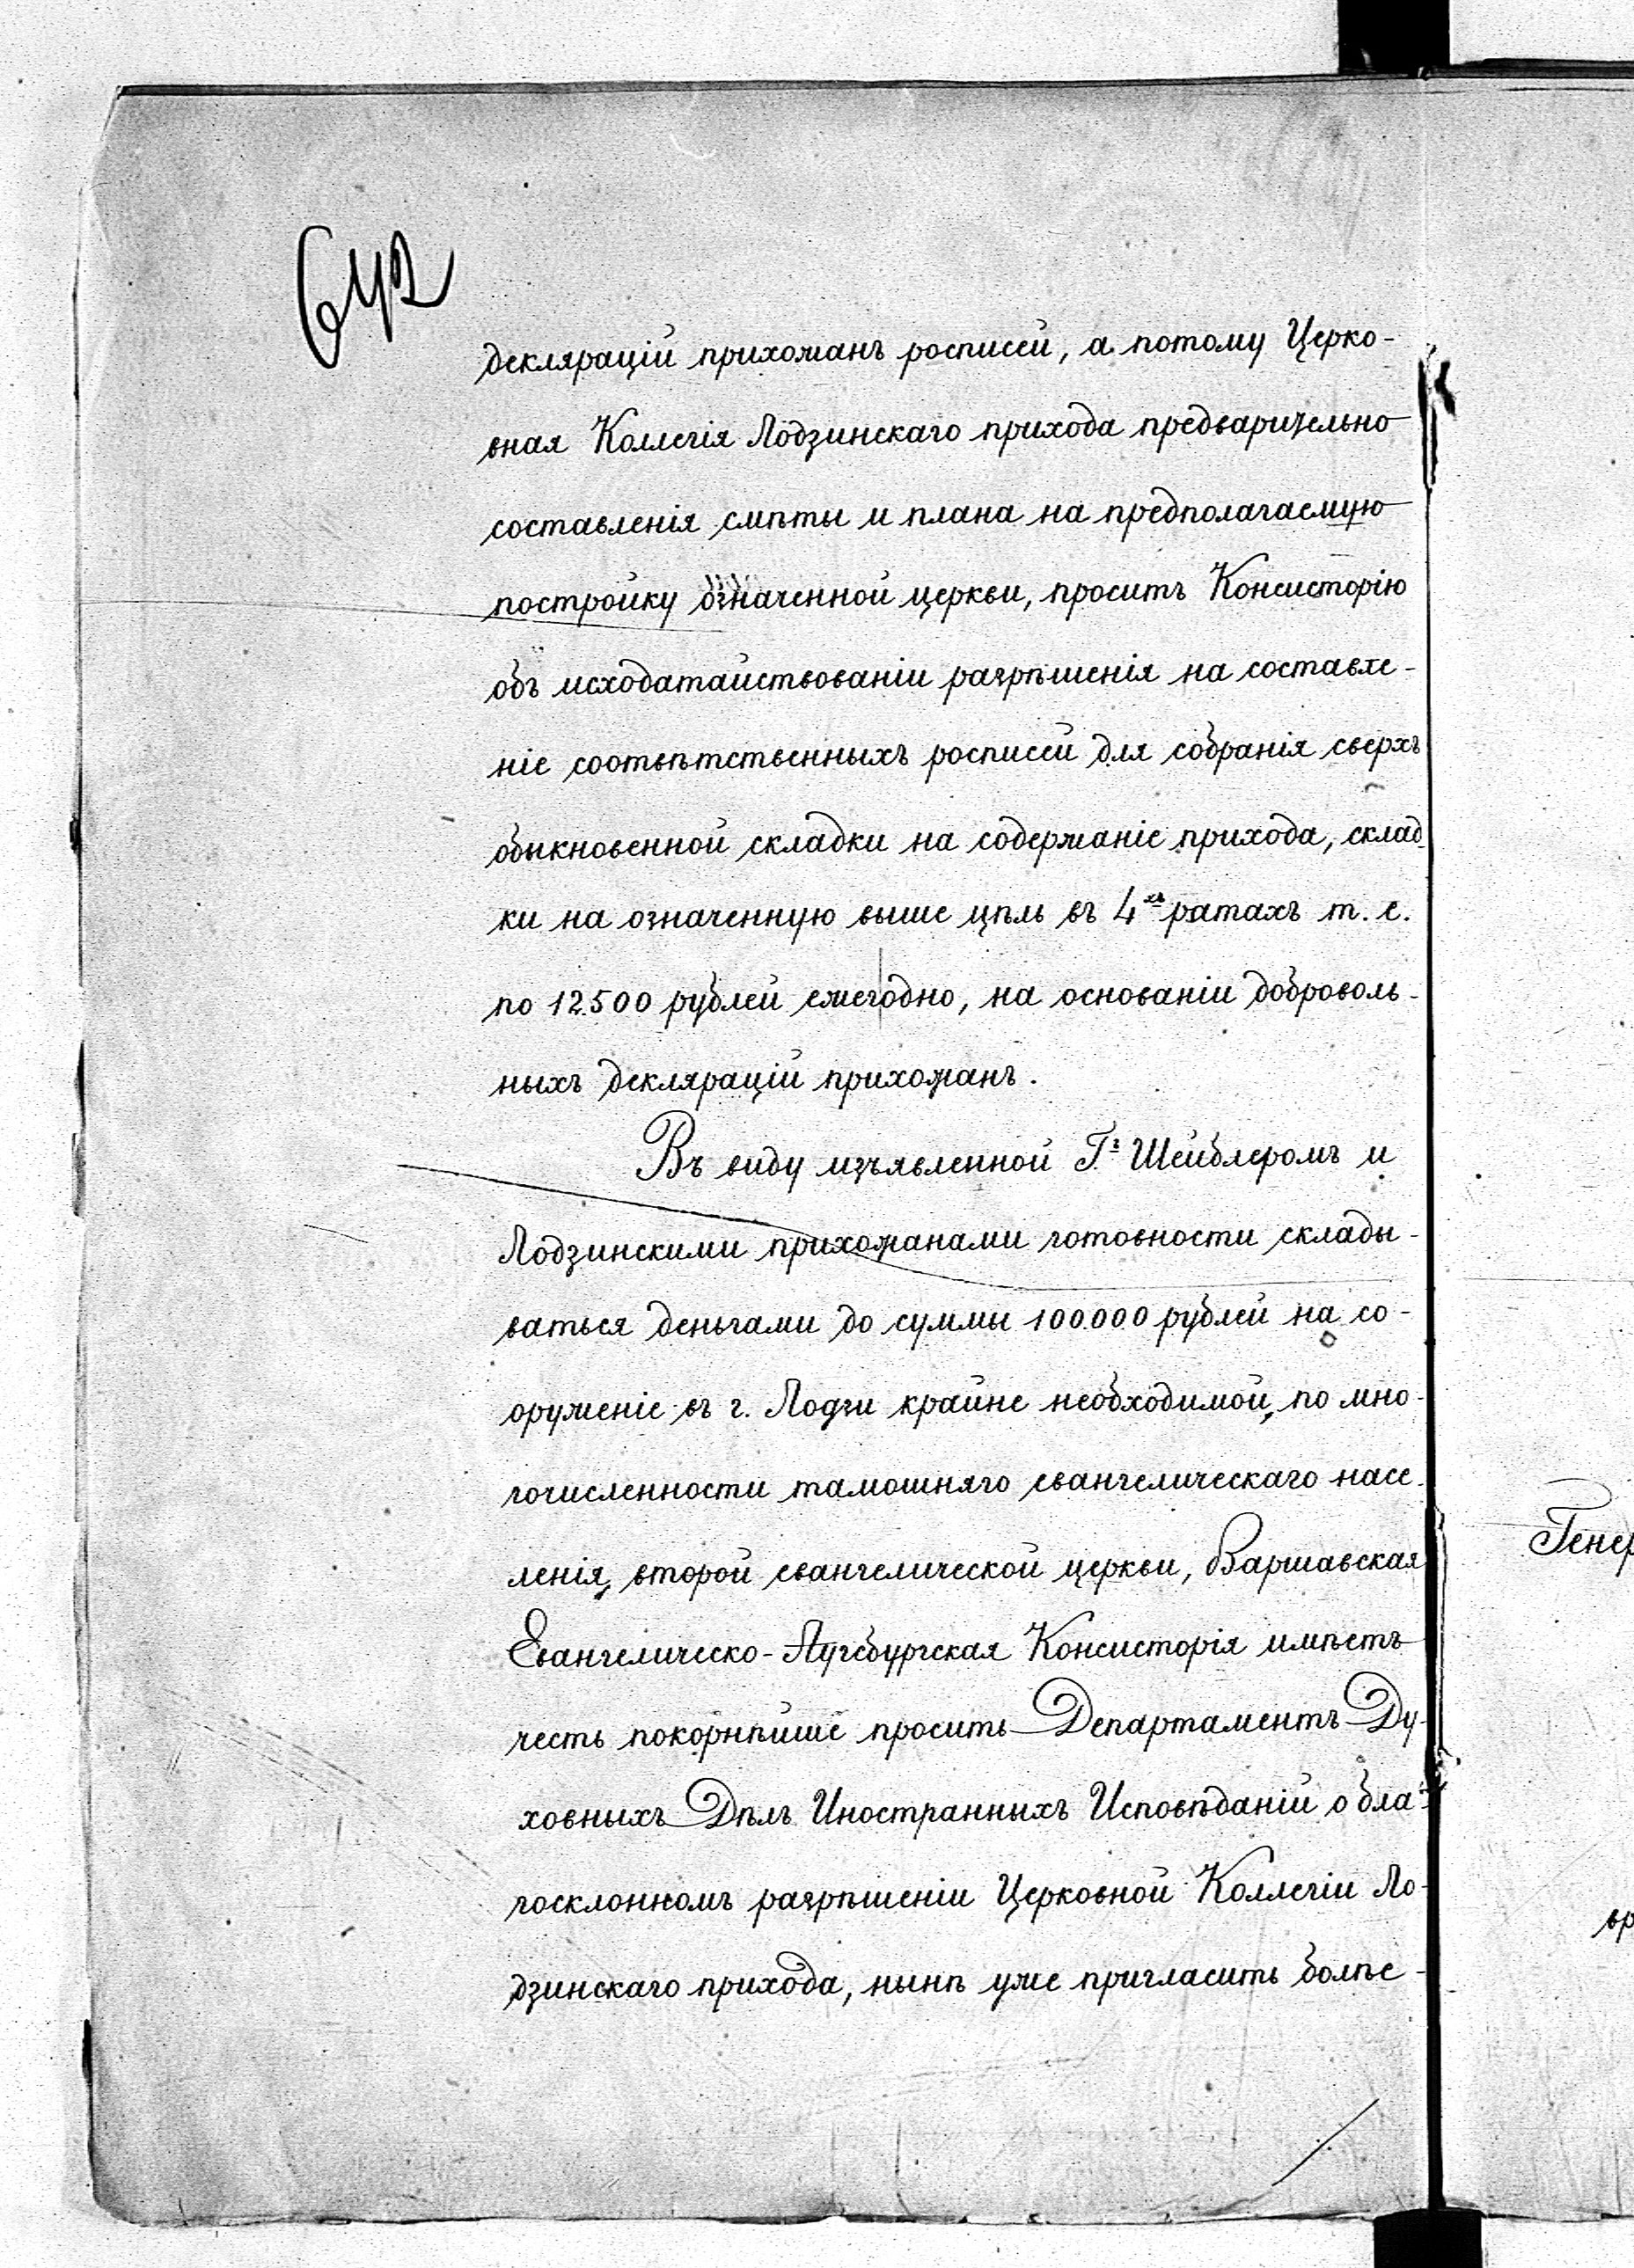 642
декляраційѝ прихожанъ росписей, а потому Церко-
вная Коллегія Лодзинскаго прихода предварительно
составленія смѣты и плана на предполагаемую
постройку означенной церкви, проситъ Консисторію
объ исходатайствованіи разрѣшенія на составле-
ніе соотвѣтственныхъ росписей для собранія сверхъ
обыкновенной складки на содержаніе прихода, склад
ки на означенную выше цѣль въ 4хъ ратахъ т. е.
по 12500 рублей ежегодно, на основаніи доброволь-
ныхъ деклярацій прихожанъ.
Въ виду изъявленной Гъ Шейблеромъ и
Лодзинскими прихожанами готовности склады-
ваться деньгами до суммы 100.000 рублей на со-
оруженіе въ г. Лодзи крайне необходимой, по мно-
гочисленности тамошняго евангелическаго насе-
ленія, второй евангелической церкви, Варшавская
Евангелическо-Аугсбургская Консисторія имѣетъ
честь покорнѣйше просить Департаментъ Ду-
ховныхъ Дѣлъ Иностранныхъ Исповѣданій о бла-
госклонномъ разрѣшеніи Церковной Коллегіи Ло-
дзинскаго прихода, нынѣ уже пригласить болѣе
Генер
вр